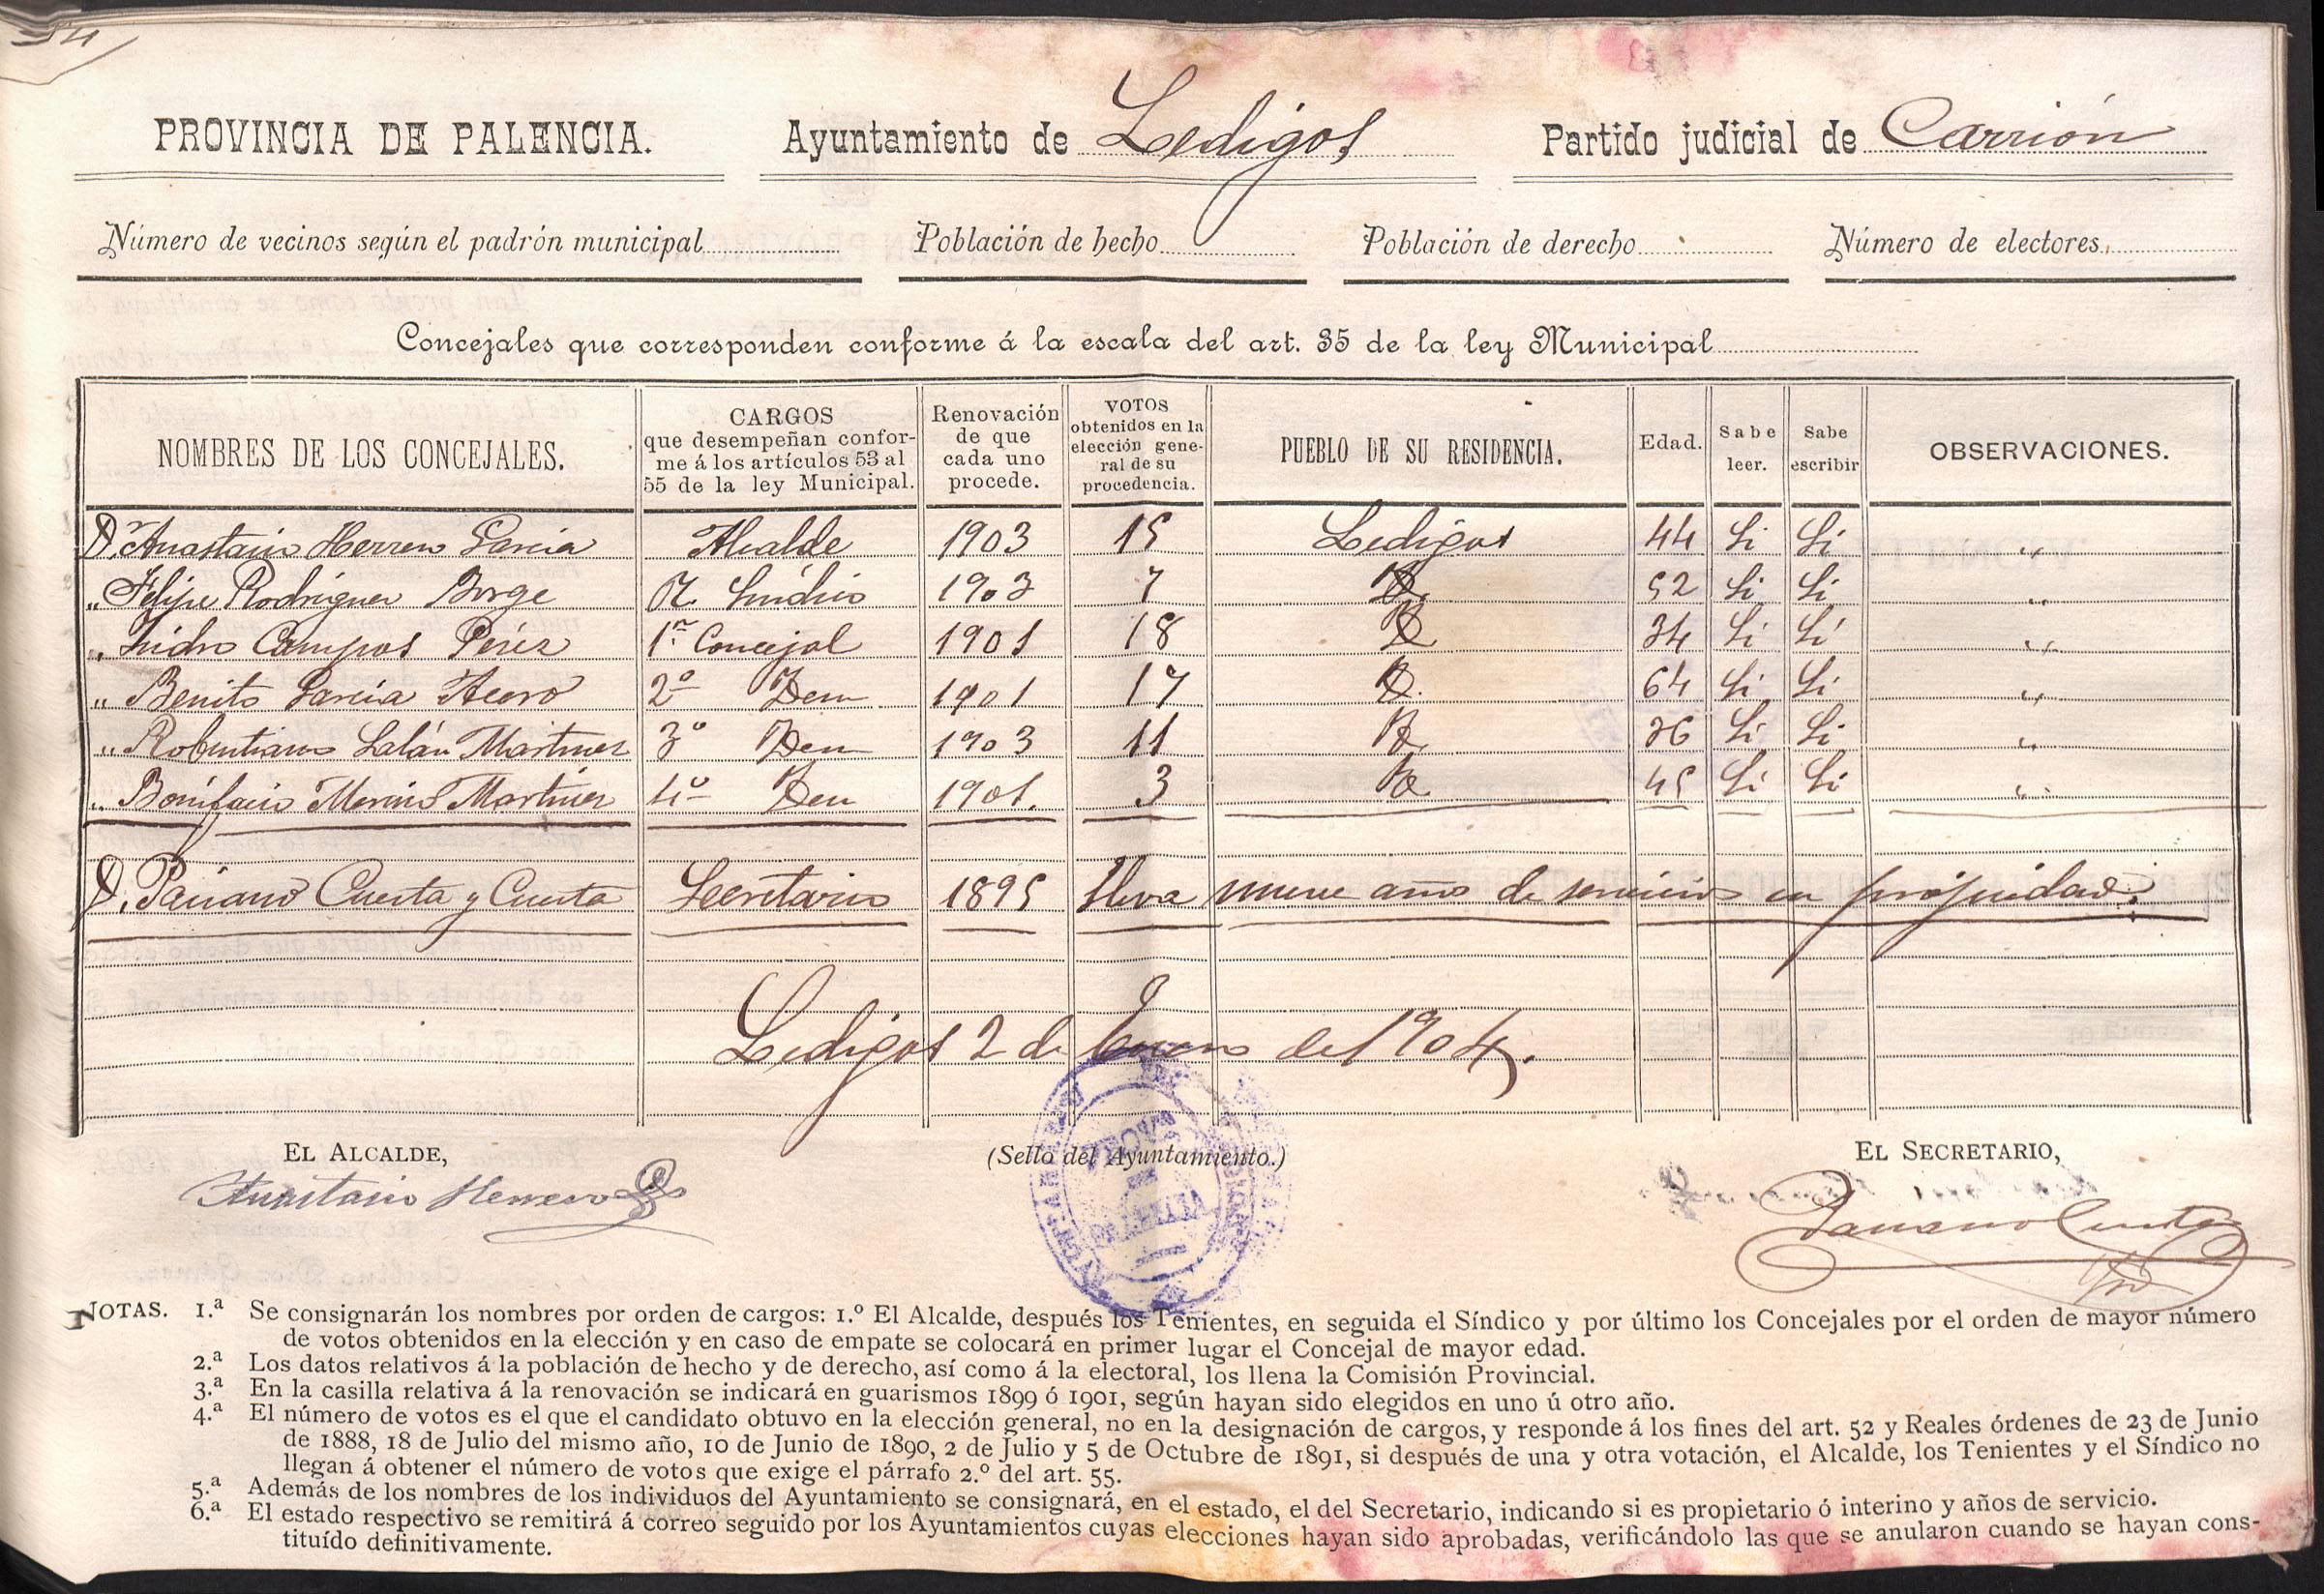 PROVINCIA DE PALENCIA. Ayuntamiento de Ledigos Partido judicial de Carrión
Número de vecinos según el padrón municipal Población de hecho Población de derecho Número de electores
Concejales que corresponden conforme á la escala del art. 35 de la ley Municipal
NOMBRES DE LOS CONCEJALES. CARGOS que desempeñan conforme á los artículos 53 al 55 de la ley Municipal. Renovación de que cada uno procede. VOTOS obtenidos en la elección general de su procedencia. PUEBLO DE SU RESIDENCIA. Edad. Sabe leer. Sabe escribir OBSERVACIONES.
D. Anastasio Herrero Garcia Alcalde 1903 15 Ledigos 44 Si Si "
" Felipe Rodriguez Borge R. Síndico 1903 7 52 Si Si "
" Isidro Campos Pérez 1er Concejal 1901 18 34 Si Si "
" Benito Garcia Acero 2º Idem 1901 17 64 Si Si "
" Robustiano Salán Martinez 3º Idem 1903 11 36 Si Si "
" Bonifacio Merino Martinez 4º Idem 1901. 3 45 Si Si "
D. Cuesta y Cuesta Secretario 1895 lleva nueve año de servicios en propiedad.
Ledigos 2 de Enero de 1904.
EL ALCALDE, (Sello del Ayuntamiento.) EL SECRETARIO,
Anastasio Herrero Cuesta
NOTAS. 1.ª Se consignarán los nombres por orden de cargos: 1.º El Alcalde, después los Tenientes, en seguida el Síndico y por último los Concejales por el orden de mayor número
de votos obtenidos en la elección y en caso de empate se colocará en primer lugar el Concejal de mayor edad.
2.ª Los datos relativos á la población de hecho y de derecho, así como á la electoral, los llena la Comisión Provincial.
3.ª En la casilla relativa á la renovación se indicará en guarismos 1899 ó 1901, según hayan sido elegidos en uno ú otro año.
4.ª El número de votos es el que el candidato obtuvo en la elección general, no en la designación de cargos, y responde á los fines del art. 52 y Reales órdenes de 23 de Junio
de 1888, 18 de Julio del mismo año, 10 de Junio de 1890, 2 de Julio y 5 de Octubre de 1891, si después de una y otra votación, el Alcalde, los Tenientes y el Síndico no
llegan á obtener el número de votos que exige el párrafo 2.º del art. 55.
5.ª Además de los nombres de los individuos del Ayuntamiento se consignará, en el estado, el del Secretario, indicando si es propietario ó interino y años de servicio.
6.ª El estado respectivo se remitirá á correo seguido por los Ayuntamientos cuyas elecciones hayan sido aprobadas, verificándolo las que se anularon cuando se hayan cons-
tituído definitivamente.